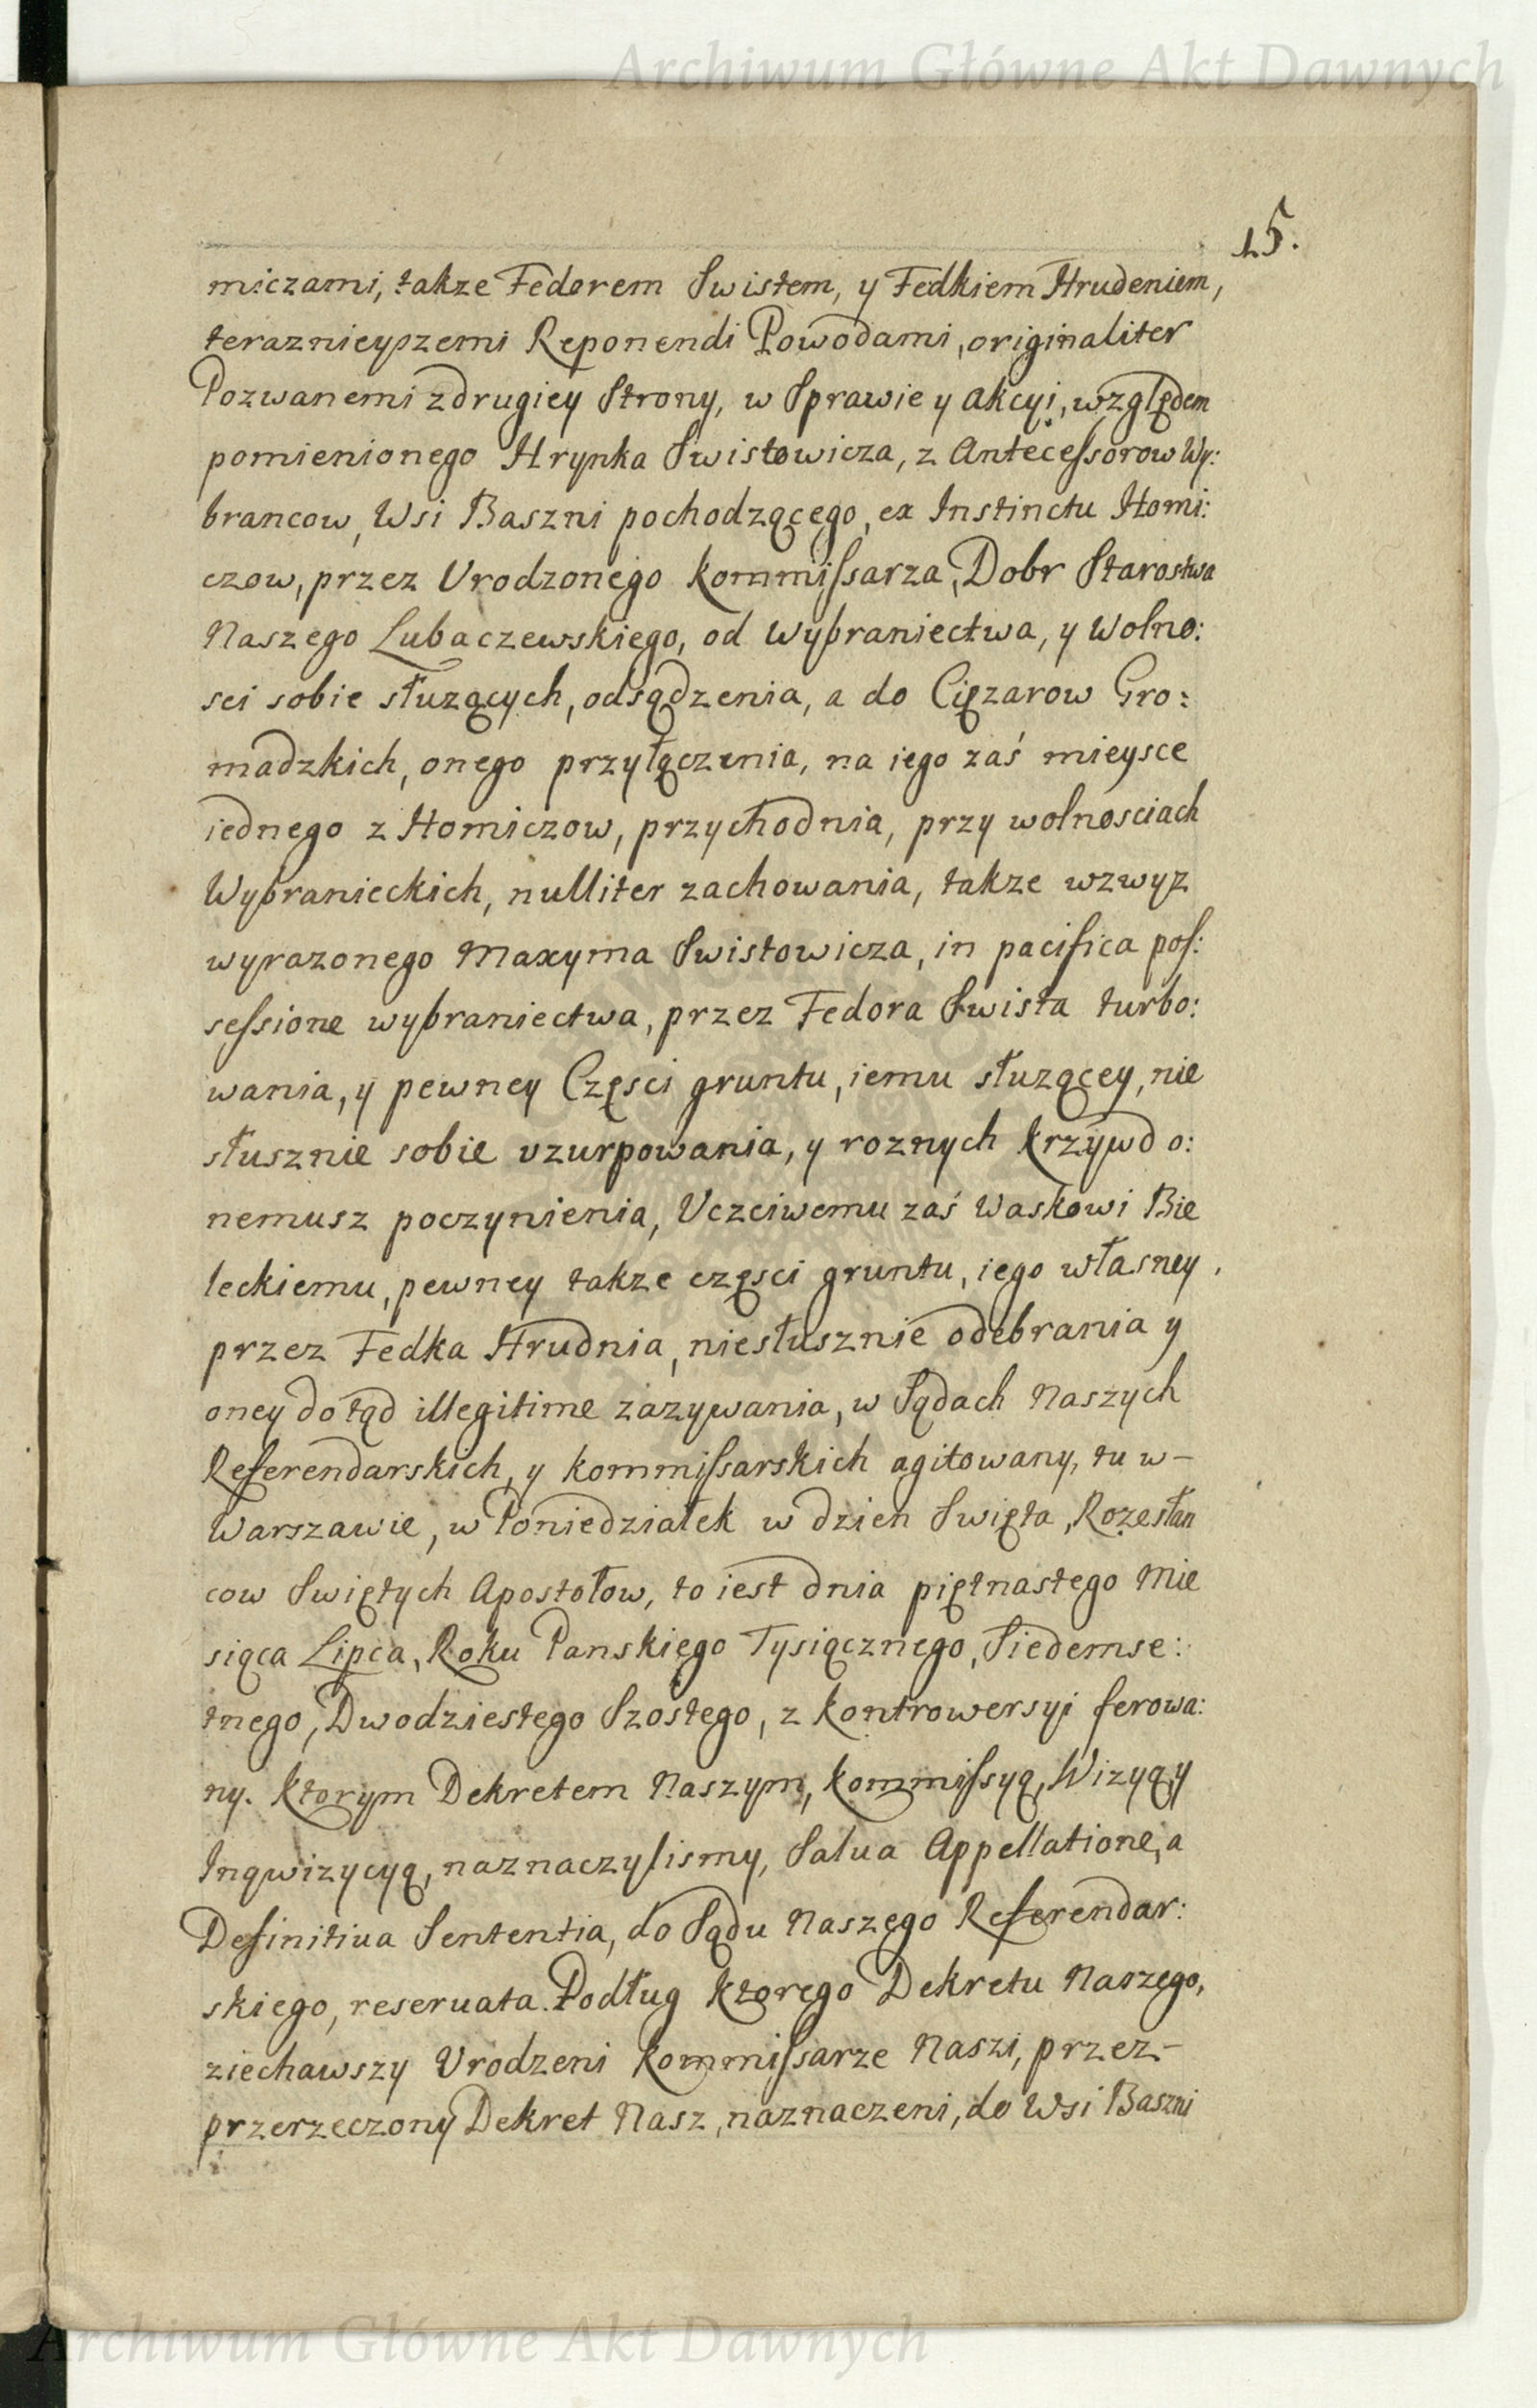 Archiwum Główne Akt Dawnych
15.
miczami, takze Fedorem Swistem, y Fedkiem Hrudeniem,
teraznieyszemi Reponendi Powodami, originaliter
Pozwanemi z drugiey Strony, w Sprawie y Akcyi, względem
pomienionego Hrynka Swistowicza, z Antecessorow Wy:
brancow, Wsi Baszni pochodzącego, ex Instinctu Homi:
czow, przez Urodzonego Kommissarza, Dobr Starostwa
Naszego Lubaczewskiego, od Wybraniectwa, y Wolno:
sci sobie słuzących, odsądzenia, a do Cięzarow Gro:
madzkich, onego przyłączenia, na iego zaś mieysce
iednego z Homiczow, przychodnia, przy wolnosciach
Wybranieckich, nulliter zachowania, takze wzwyz
wyrazonego Maxyma Swistowicza, in pacifica pos:
sessione wybraniectwa, przez Fedora Swista turbo:
wania, y pewney Częsci gruntu, iemu słuzącey, nie
słusznie sobie uzurpowania, y roznych krzywd o:
nemusz poczynienia, Uczciwemu zaś Waskowi Bie
leckiemu, pewney takze częsci gruntu, iego własney,
przez Fedka Hrudnia, niesłusznie odebrania y
oney do tąd illegitime zazywania, w Sądach Naszych
Referendarskich, y Kommissarskich agitowany, tu w-
Warszawie, w Poniedziałek w dzien Swięta, Rozesłan
cow Swiętych Apostołow, to iest dnia piętnastego Mie
siąca Lipca, Roku Panskiego Tysiącznego, Siedemse:
tnego, Dwodziestego Szostego, z Kontrowersyi ferowa:
ny. Ktorym Dekretem Naszym, Kommissyą, Wizyą, y
Inqwizycyą, naznaczylismy, Salua Appellatione, a
Definitiua Sententia, do Sądu Naszego Referendar:
skiego, reseruata. Podług Ktorego Dekretu Naszego,
ziechawszy Urodzeni Kommissarze Naszi, przez-
przerzeczony Dekret Nasz, naznaczeni, do Wsi Baszni
Archiwum Główne Akt Dawnych